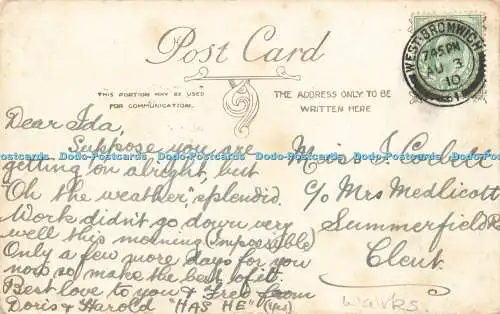 Post Card
THIS PORTION MAY BE USED
FOR COMMUNICATION.
THE ADDRESS ONLY TO BE
WRITTEN HERE
WEST BROMWICH
7.45 PM
AU 3
10
Dear Ida,
Suppose you are
getting on alright, but
"Oh the weather," splendid.
Work didn't go down very
well this morning (Impossible)
Only a few more days for you
now so make the best of it.
Best love to you & Fred from
Doris & Harold "HAS HE" (Yes)
Miss I.
c/o Mrs Medlicott
Summerfield
Clent.
Works.
Dodo-Postcards Dodo-Postcards Dodo-Postcards Dodo-Postcards Dodo-Postcards